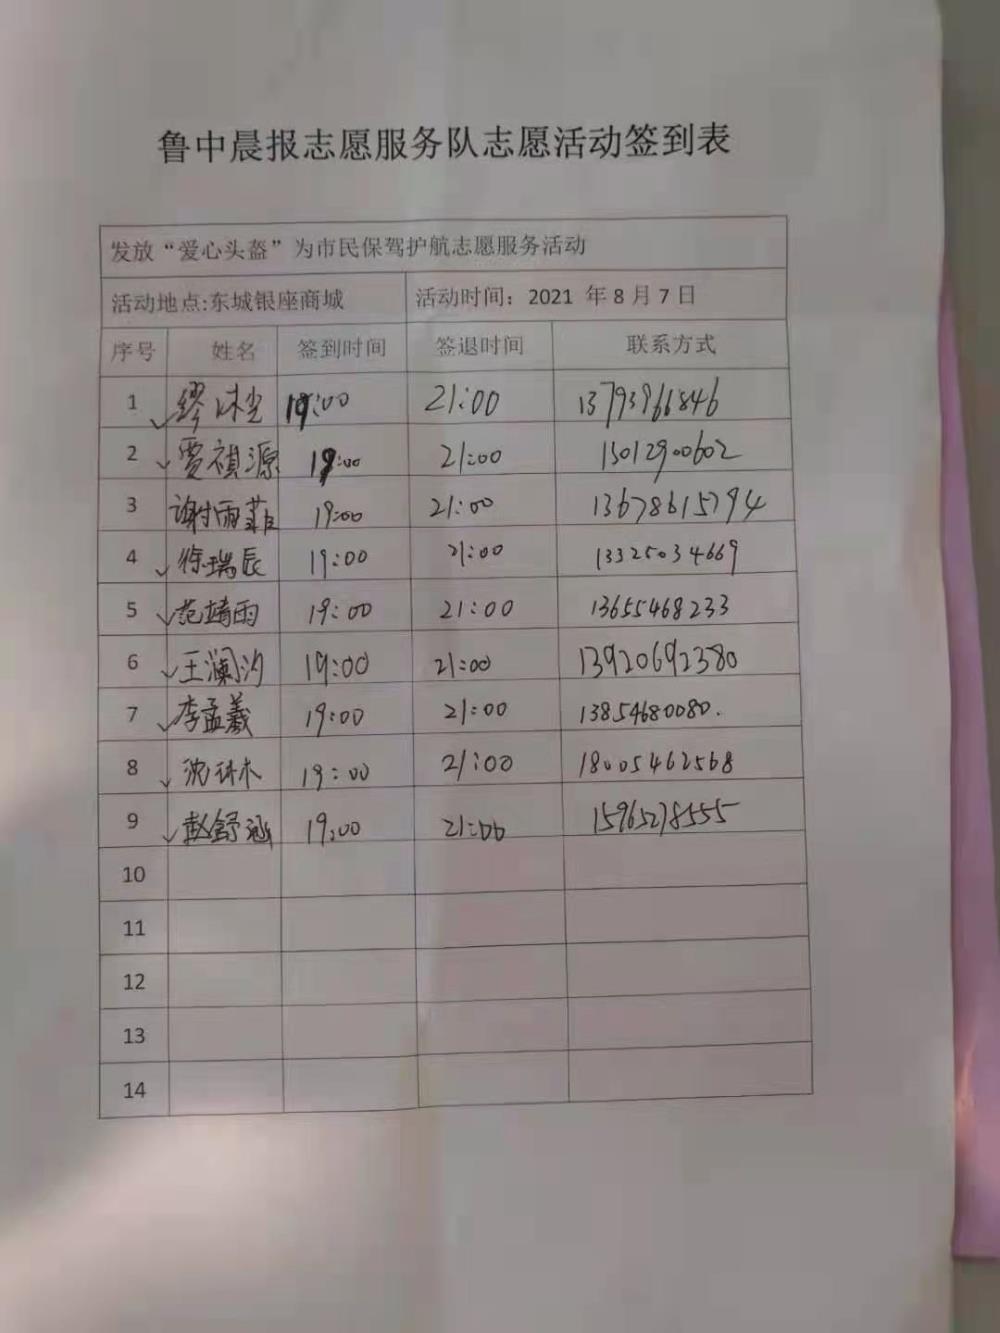 鲁中晨报志愿服务队志愿活动签到表
发放“爱心头盔”为市民保驾护航志愿服务活动
活动地点:东城银座商城 活动时间：2021 年8月7日
序号 姓名 签到时间 签退时间 联系方式
1 缪沐 19:00 21:00 13793966846
2 贾祺源 19:00 21:00 15012900602
3 谢雨菲 19:00 21:00 13678615794
4 徐瑞辰 19:00 21:00 13325034669
5 范靖雨 19:00 21:00 13655468233
6 王澜汐 19:00 21:00 13920692380
7 李孟羲 19:00 21:00 13854680080.
8 沈沐木 19:00 21:00 18005462568
9 赵舒涵 19:00 21:00 15965278555
10
11
12
13
14